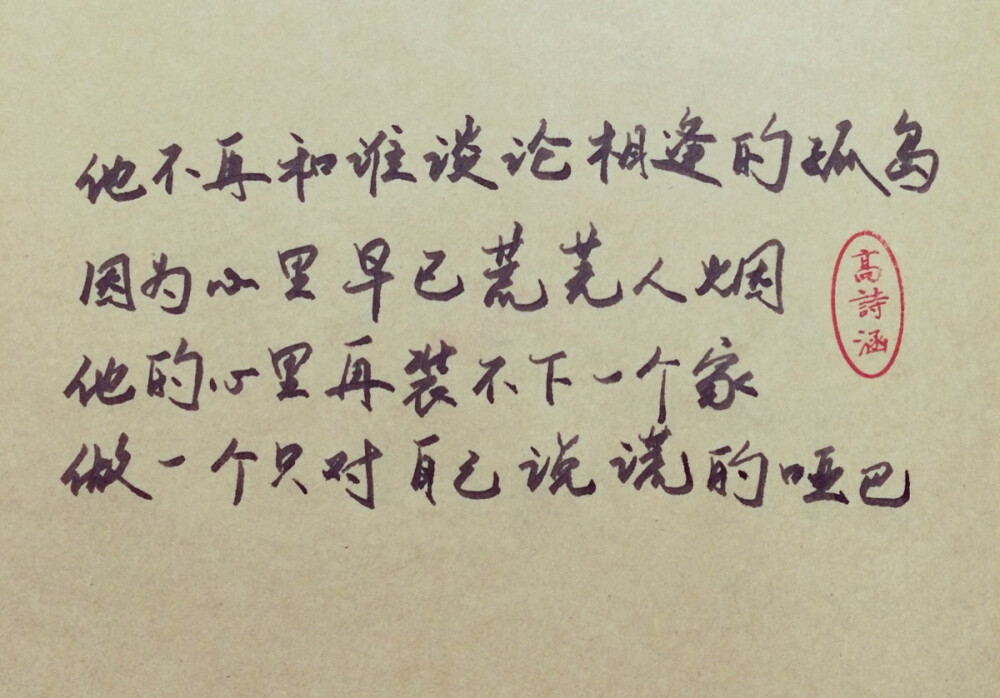 他不再和谁谈论相逢的孤岛
因为心里早已荒芜人烟
他的心里再装不下一个家
做一个只对自己说谎的哑巴
高詩涵